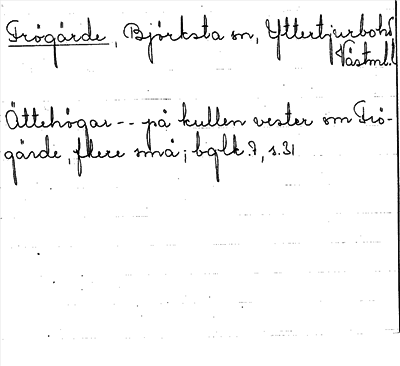 Frögärde, Björksta sn, Yttertjurbo hd
Västml.l
Ättehögar -- på kullen vester om Frö-
gärde, flere små; bqlk. 7, s. 31